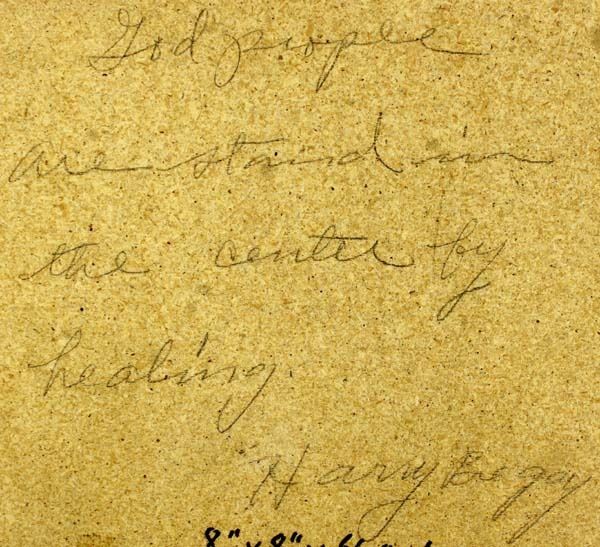 God people
are stand in
the center by
healing.
Harry Begay
8" x 8" x